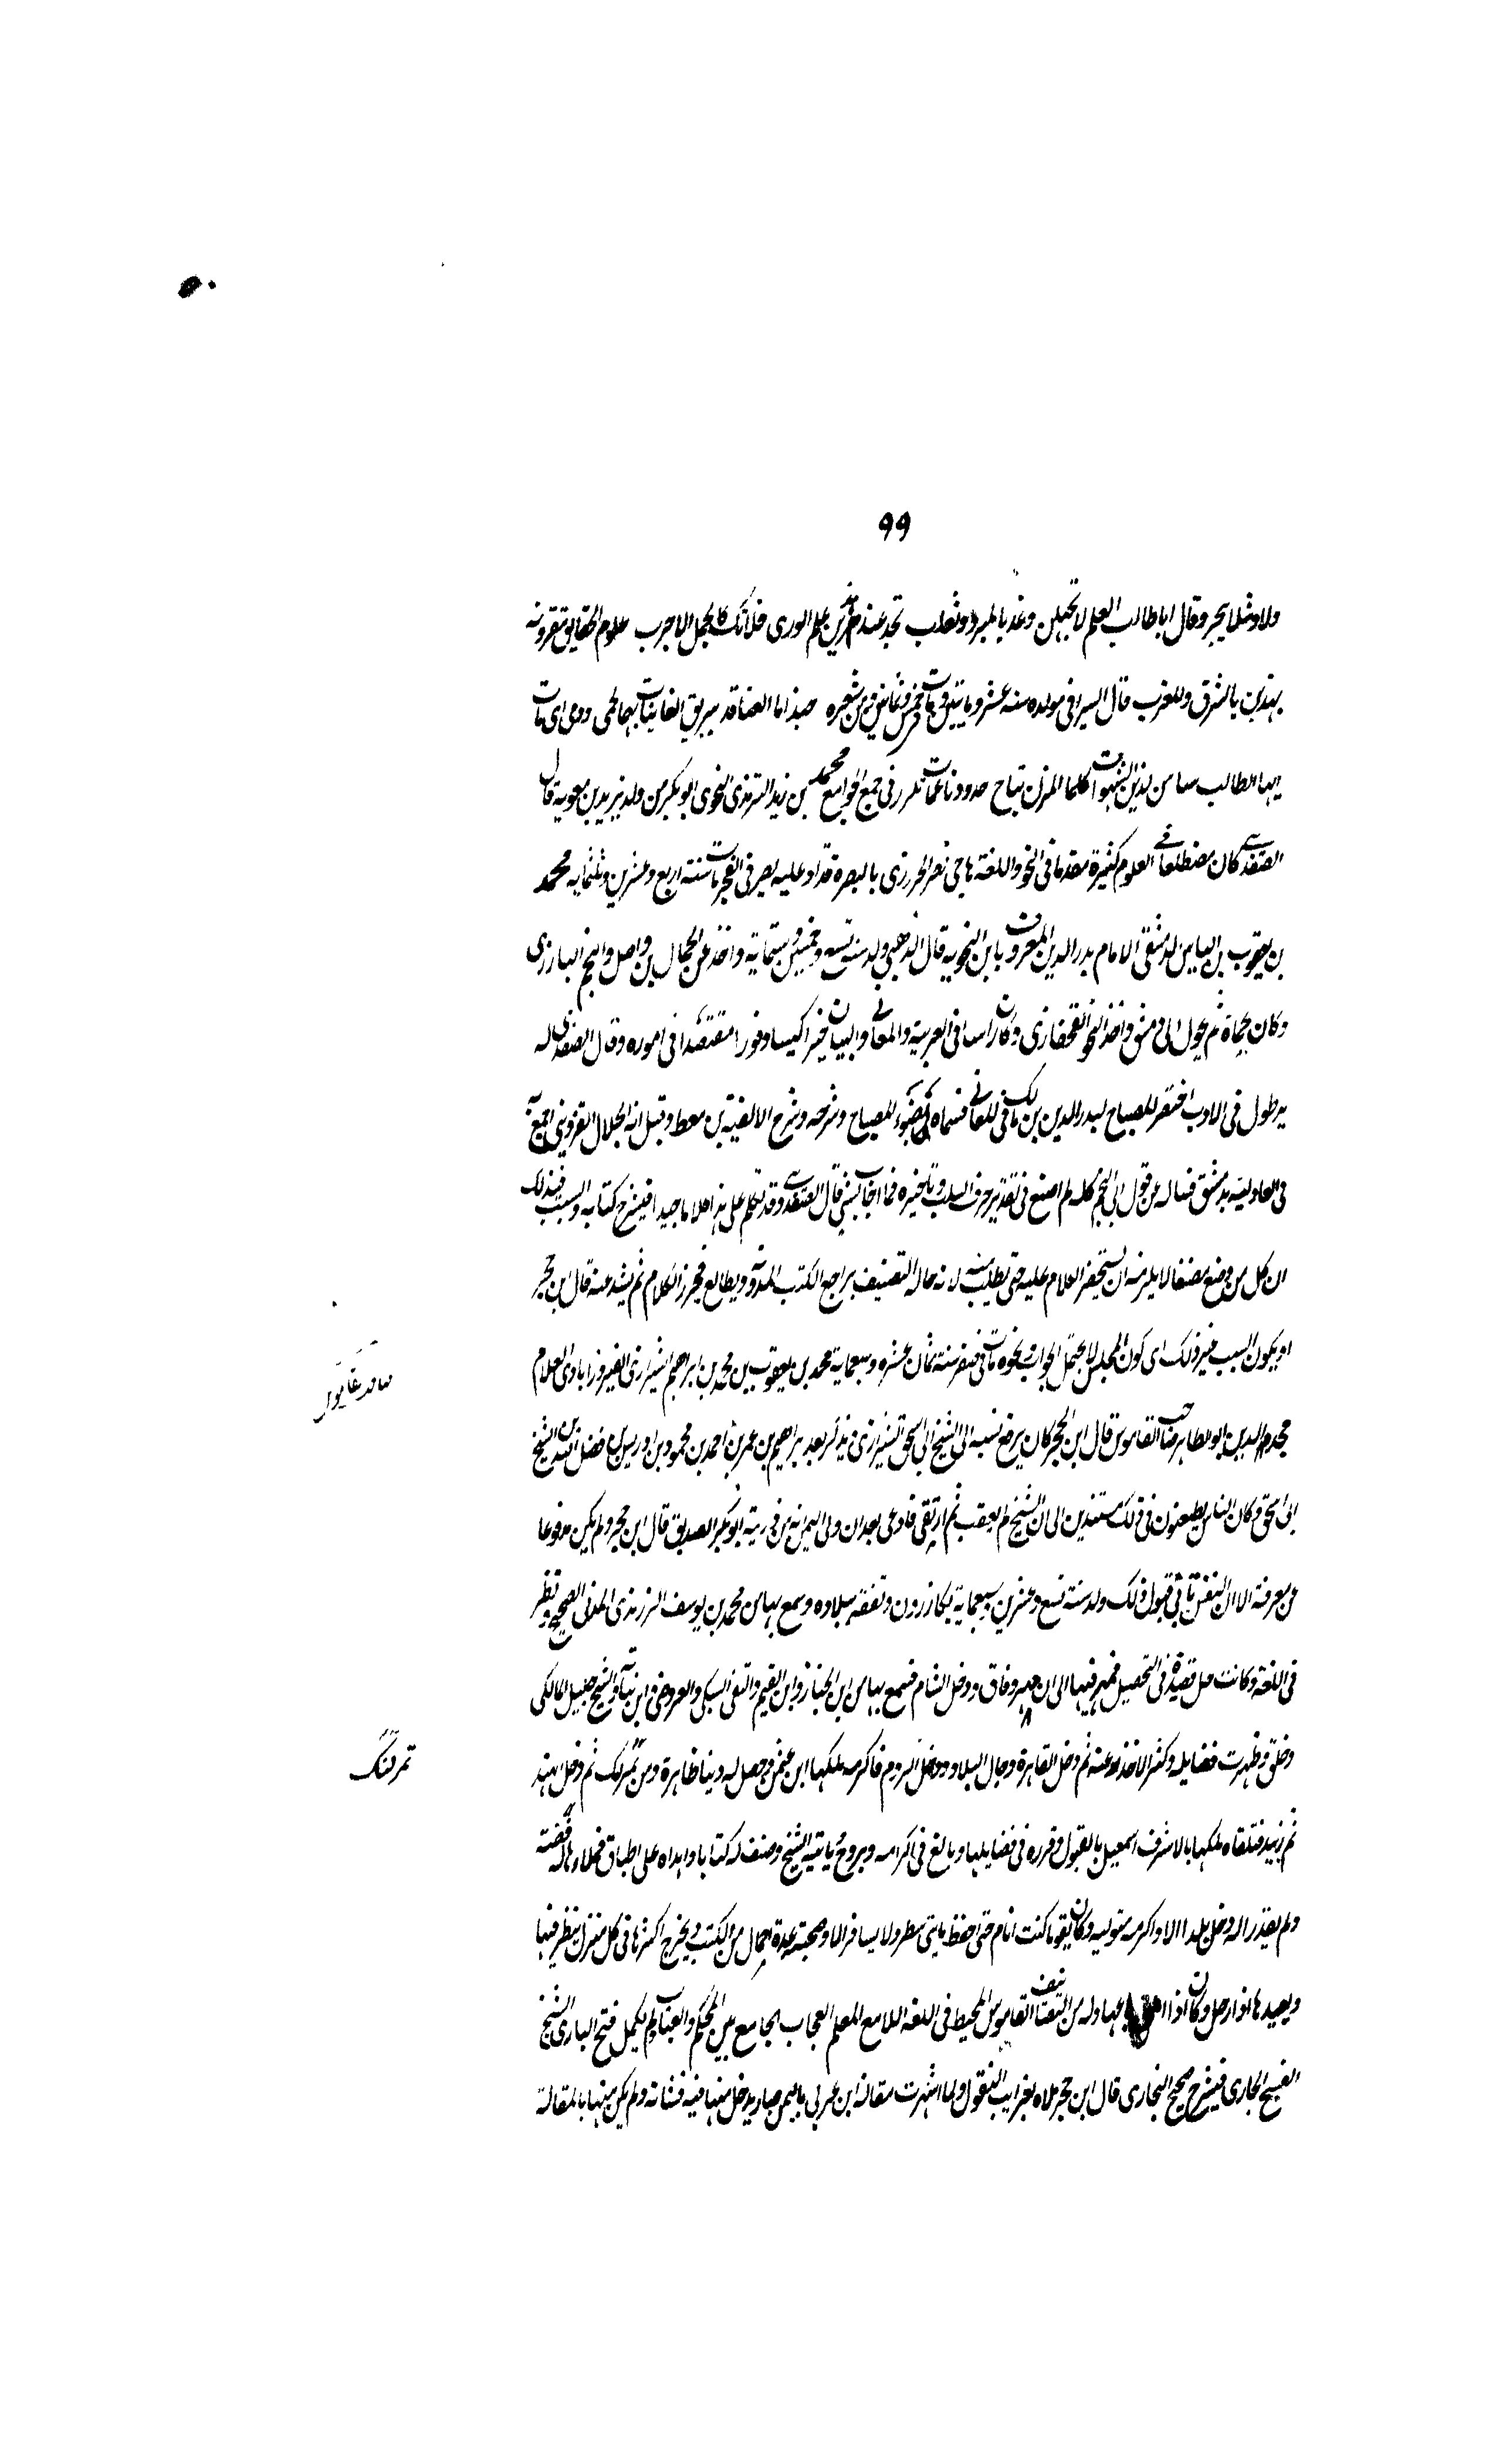 ٩٩
ولا وشلا يحر وقال ايا طالب العلم لا تجهلن وعذ بالمبرد او ثعلب تجد عند هذين علم الورى فلا تك كالجمل الاجرب علوم الخلايق مقرونه
بهذين بالشرق والمغرب قال السيرافي مولده سنه عشر ومايتين ومات خمس وثمانين ومن شعره حبذا ماء العناقيد بريق الغانيات بهما لحمى ودمى اى نبات
ايها الطالب من لذيذ الشهوات كلما المزن تفاح خدود ناعمات تكرر في جمع الجوامع محمد بن زيد الترمذى النحوى ابو بكر من ولد يزيد بن معوية قال
الصفدى كان مضطلعا في العلوم كثيرة مقدما في النحو واللغة هاجى نصر الخبرزى بالبصرة مات سنة اربع وعشرين وثلثمايه محمد
بن يعقوب بن الياس الدمشقى الامام بدر الدين المعروف بابن النحويه قال الذهبى ولد سنه تسع وخمسين وستماية واخذ عن الجمال بن واصل والنجم البارزى
وكان بحماة ثم تحول الى دمشق واخذ النحو القحفازى وكان راسا في العربية والمعانى والبيان خيرا كيسا وقورا مقتصدا في اموره وقال الصفدى له
يد طولى في الادب اختصر المصباح لبدر الدين بن مالك في المعانى فسماه ضوء المصباح وشرحه وشرح الالفية بن معط وقيل انه الجلال القزوينى اجتمع به
في العادلية بدمشق فساله عن قول ابى النجم كله لم اصنع في تقدير حرف السلب وتاخيره فما اجاب بشى قال الصفدى وقد تكلم على هذا كلاما جيدا في شرح كتابه والسبب في ذلك
ان كل من وضع مصنفا لا يلزمه ان يستحضر الكلام عليه حتى يطلب منه لانه حاله التصنيف يراجع الكتب المدونة ويطالع فيحرر الكلام ثم يشذ عنه قال ابن حجر
او يكون السبب غير ذلك اى كون المجلس لا يحتمل الجواب ونحوه مات في صفر سنة ثمان عشره وسبعماية محمد بن يعقوب بن محمد بن ابراهيم الشيرازى الفيروزابادى العلام
مجد الدين ابو الطاهر صاحب القاموس قال ابن الحجر كان يرفع نسبه الى الشيخ ابى اسحق الشيرازى ويذكر بعد ابراهيم بن عمر بن احمد بن محمود بن ادريس بن فضل الله بن الشيخ
ابى اسحق وكان الناس يطعنون في ذلك مستندين الى ان الشيخ لم يعقب ثم ارتقى فادعى بعد ان ولى اليمن انه من ذرية ابو بكر الصديق قال ابن حجر ولم يكن مدفوعا
عن معرفة الا ان النفس تابى قبول ذلك ولد سنة تسع وعشرين وسبعماية بكازرون وتفقه ببلاده وسمع بها من محمد بن يوسف الزرندى المدنى الصحيح ونظر
في اللغة وكانت جل قصده في التحصيل فمهر فيها الى ان مهر وفاق ودخل الشام فسمع بها من ابن الخباز وابن القيم والتقى السبكى والعروضى وابن نباتة والشيخ خليل المالكى
وخلق وظهرت فضايله وكثر الاخذ عنه ثم دخل القاهرة وجال البلاد ودخل الروم فاكرمه ملكها ابن عثمن وحصل له دنيا ظاهرة ومن تمرلنك ثم دخل الهند
تمرلنگ
ثم زبيد فتلقاه ملكها بالاشرف اسمعيل بالقبول وقرره في قضايها وبالغ في اكرامه وتزوج بابنته الشيخ وصنف له كتابا واهداه على اطباق فملاها له فضة
ولم يقدر انه دخل بلدا الا واكرمه متوليه وكان يقول ما كنت انام حتى احفظ مايتى سطر ولا يسافر الا وصحبته عدة احمال من الكتب ويخرج اكثرها في كل منزل ينظر فيها
ويعيدها اذا ارحل وكان اذا وله من التصانيف القاموس المحيط في اللغة اللامع المعلم العجاب الجامع بين المحكم والعباب لم يكمل فتح البارى بالشيخ
الفسيح الجارى في شرح صحيح البخارى قال ابن حجر ملاه بغرايب النقول ولما اشهرت مقالة ابن عربى باليمن صار يدخل منها فيه فشانه ولم يكن متهما بالمقالة